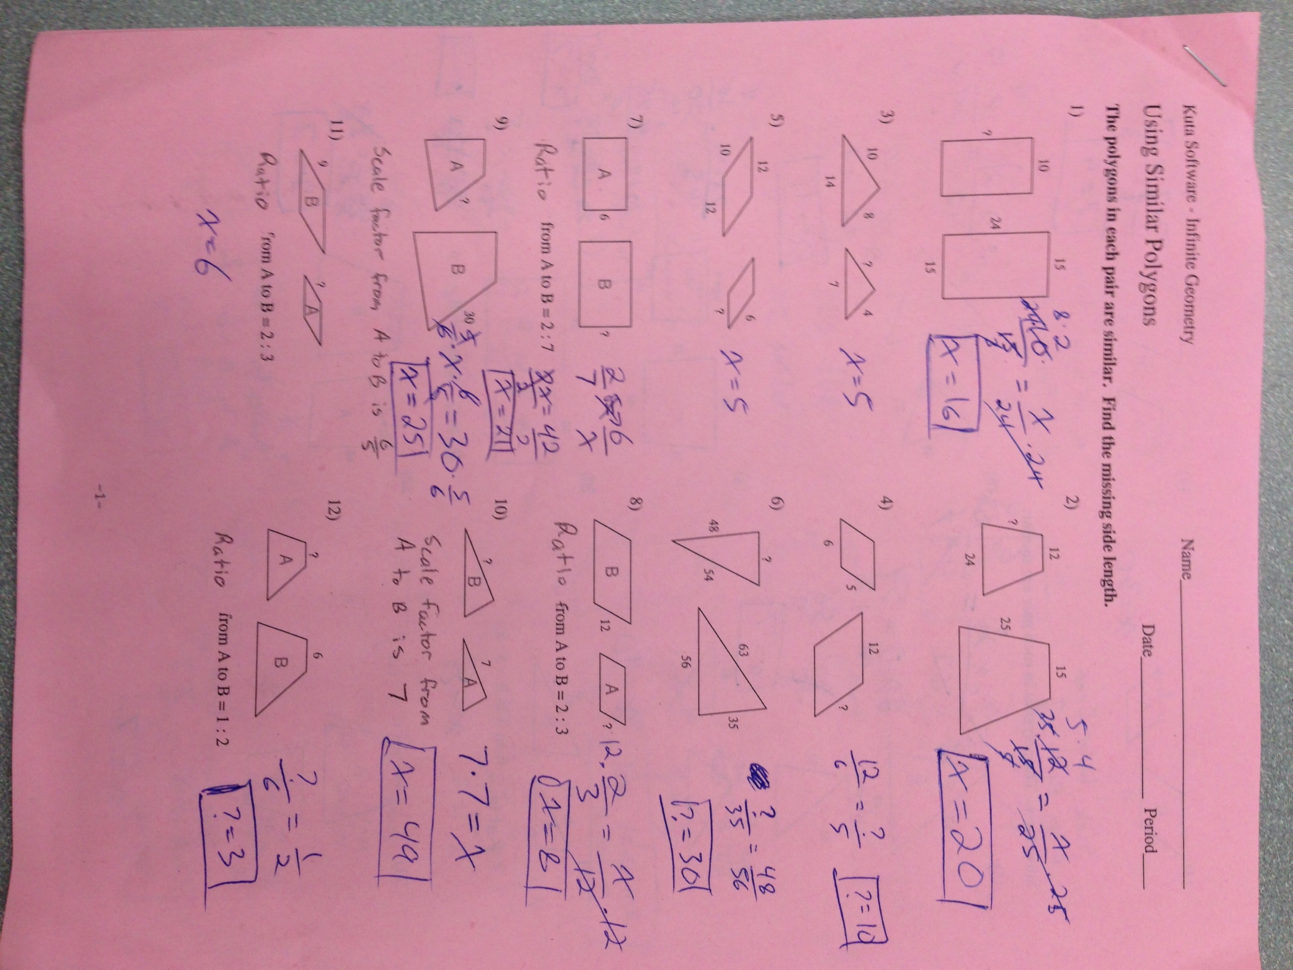 Kuta Software - Infinite Geometry
Name
Using Similar Polygons
Date Period
The polygons in each pair are similar. Find the missing side length.
1)
10
?
24
15
15
8·2
= x/24 · 24
x = 16
2)
12
?
24
25
15
5·4
= x/25 · 25
x = 20
3)
10
8
14
?
4
7
x = 5
4)
6
5
12
?
12/6 = ?/5
?=10
5)
12
10
12
6
?
x = 5
6)
?
48
54
63
56
35
?/35 = 48/56
?=30
7)
A
6
B
?
Ratio from A to B = 2 : 7
2/7 6/x
2x = 42
x = 21
8)
B
12
A
?
Ratio from A to B = 2 : 3
12 · 2/3 = x/12 · 12
x = 8
9)
A
?
B
30
Scale factor from A to B is 6/5
5/6 · x · 6/5 = 30 · 5/6
x = 25
10)
?
B
7
A
Scale factor from
A to B is 7
7·7 = x
x = 49
11)
9
B
?
A
Ratio from A to B = 2 : 3
x = 6
12)
?
A
6
B
Ratio from A to B = 1 : 2
?/6 = 1/2
? = 3
-1-